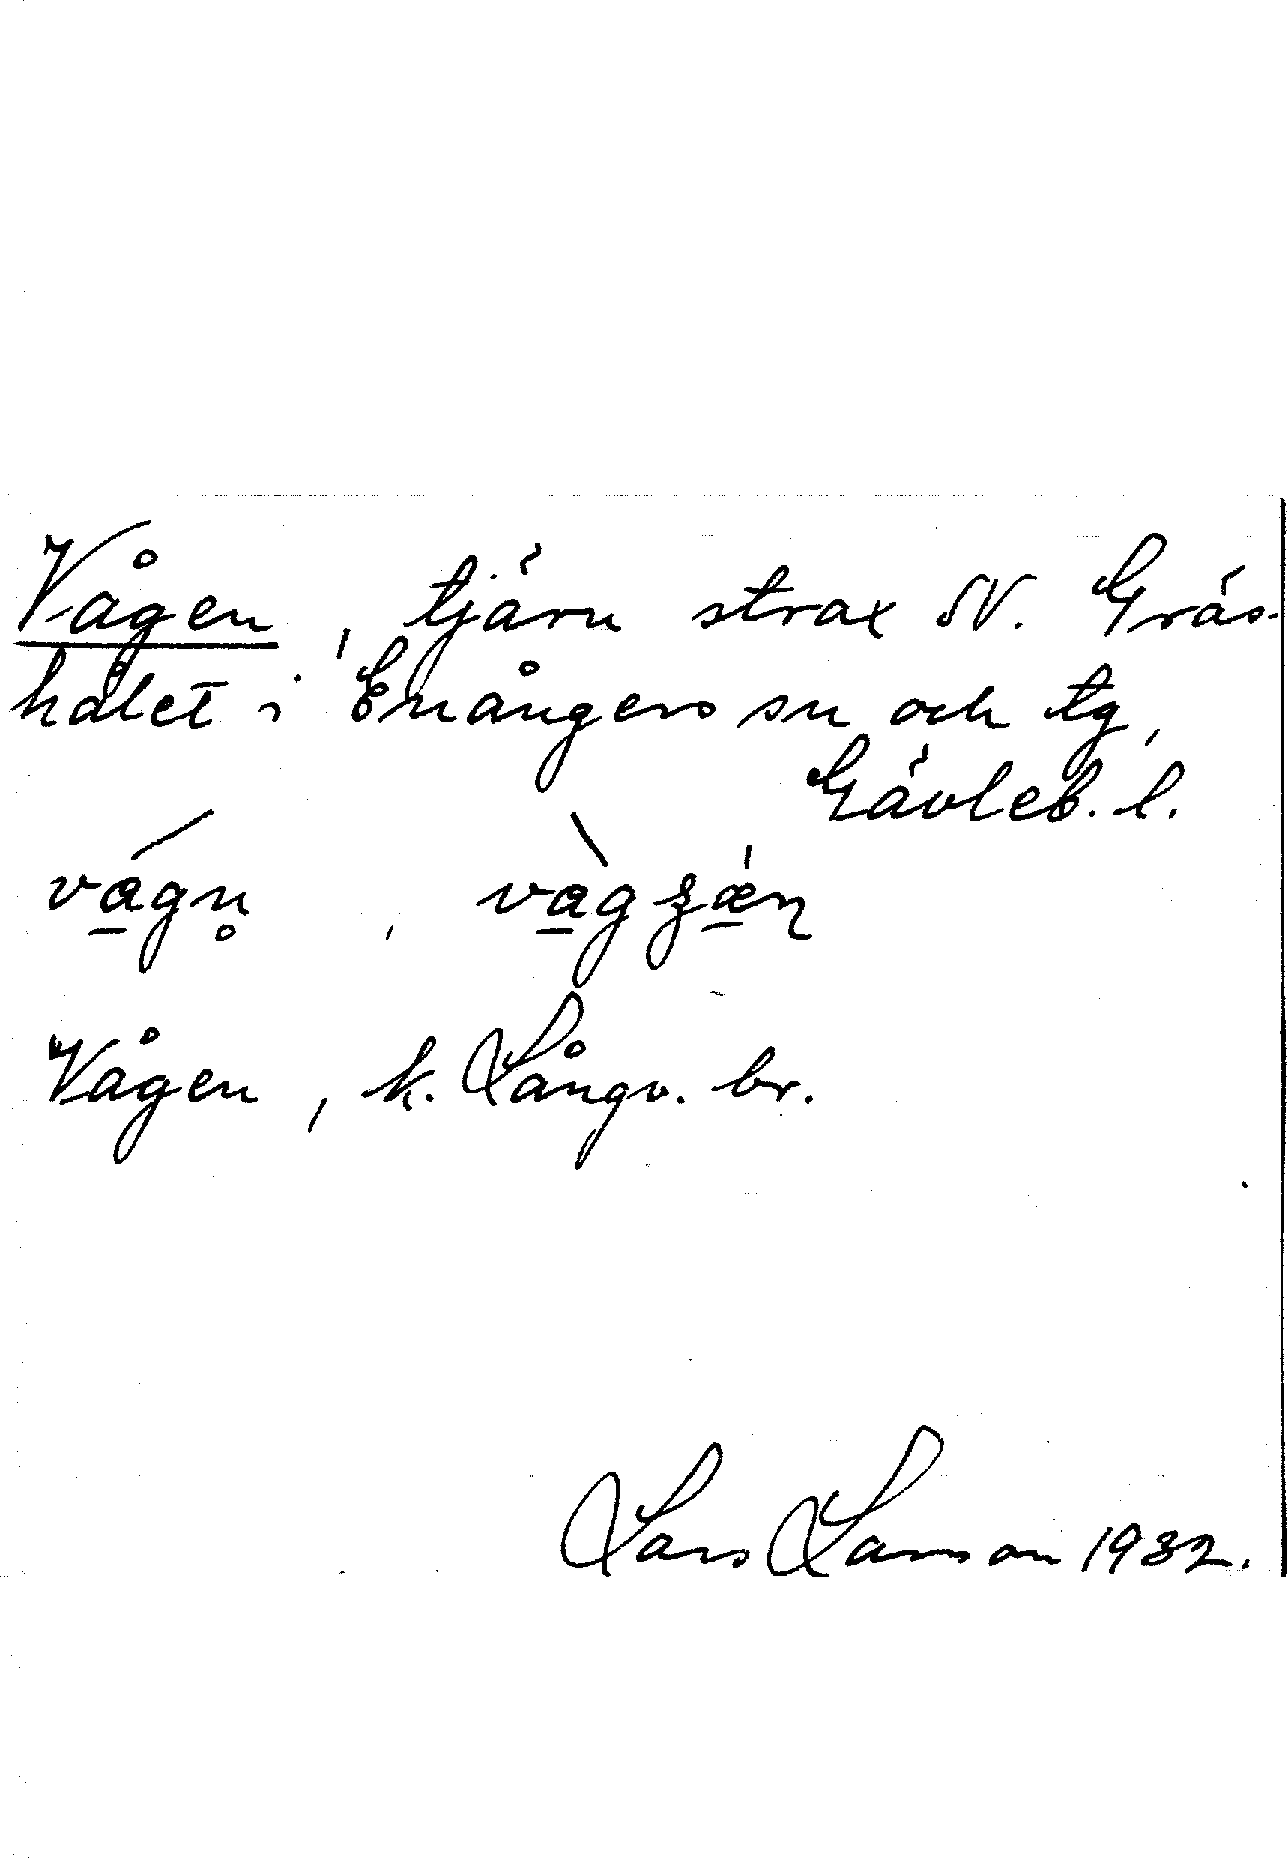 Vågen, tjärn strax N. Gräs-
hålet i Enångers sn och tg,
Gävleb. l.
Vågen, k. Långv. br.
Lars Larsson 1932.